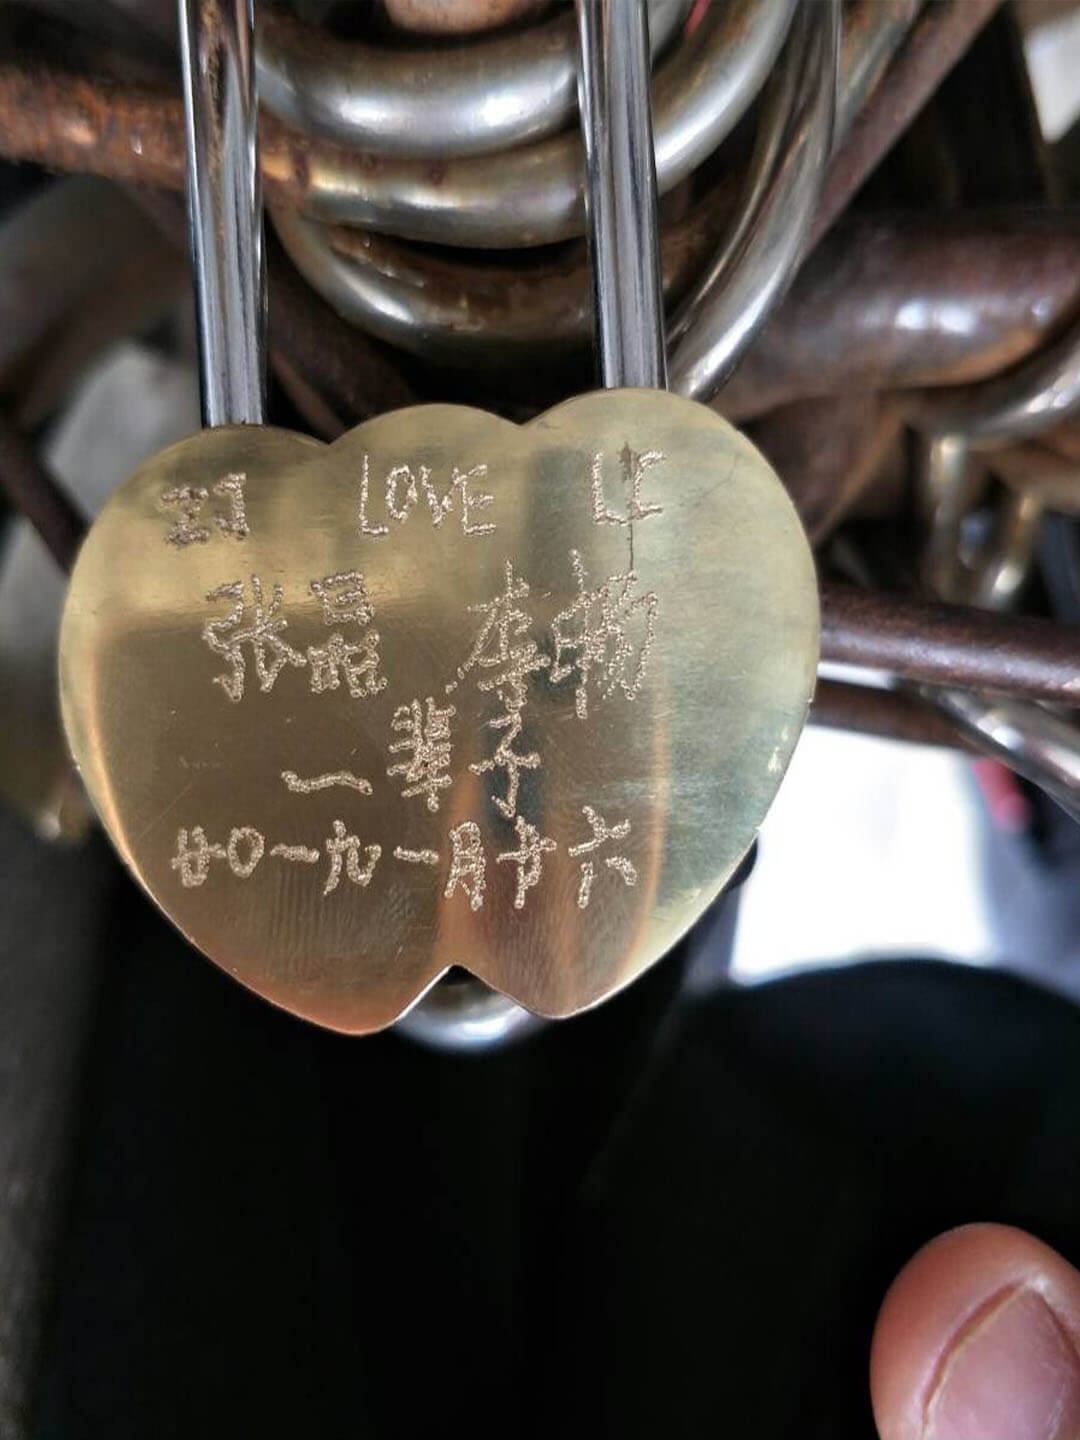 ZJ LOVE LF
张晶 李
一辈子
廿0一九一月廿六